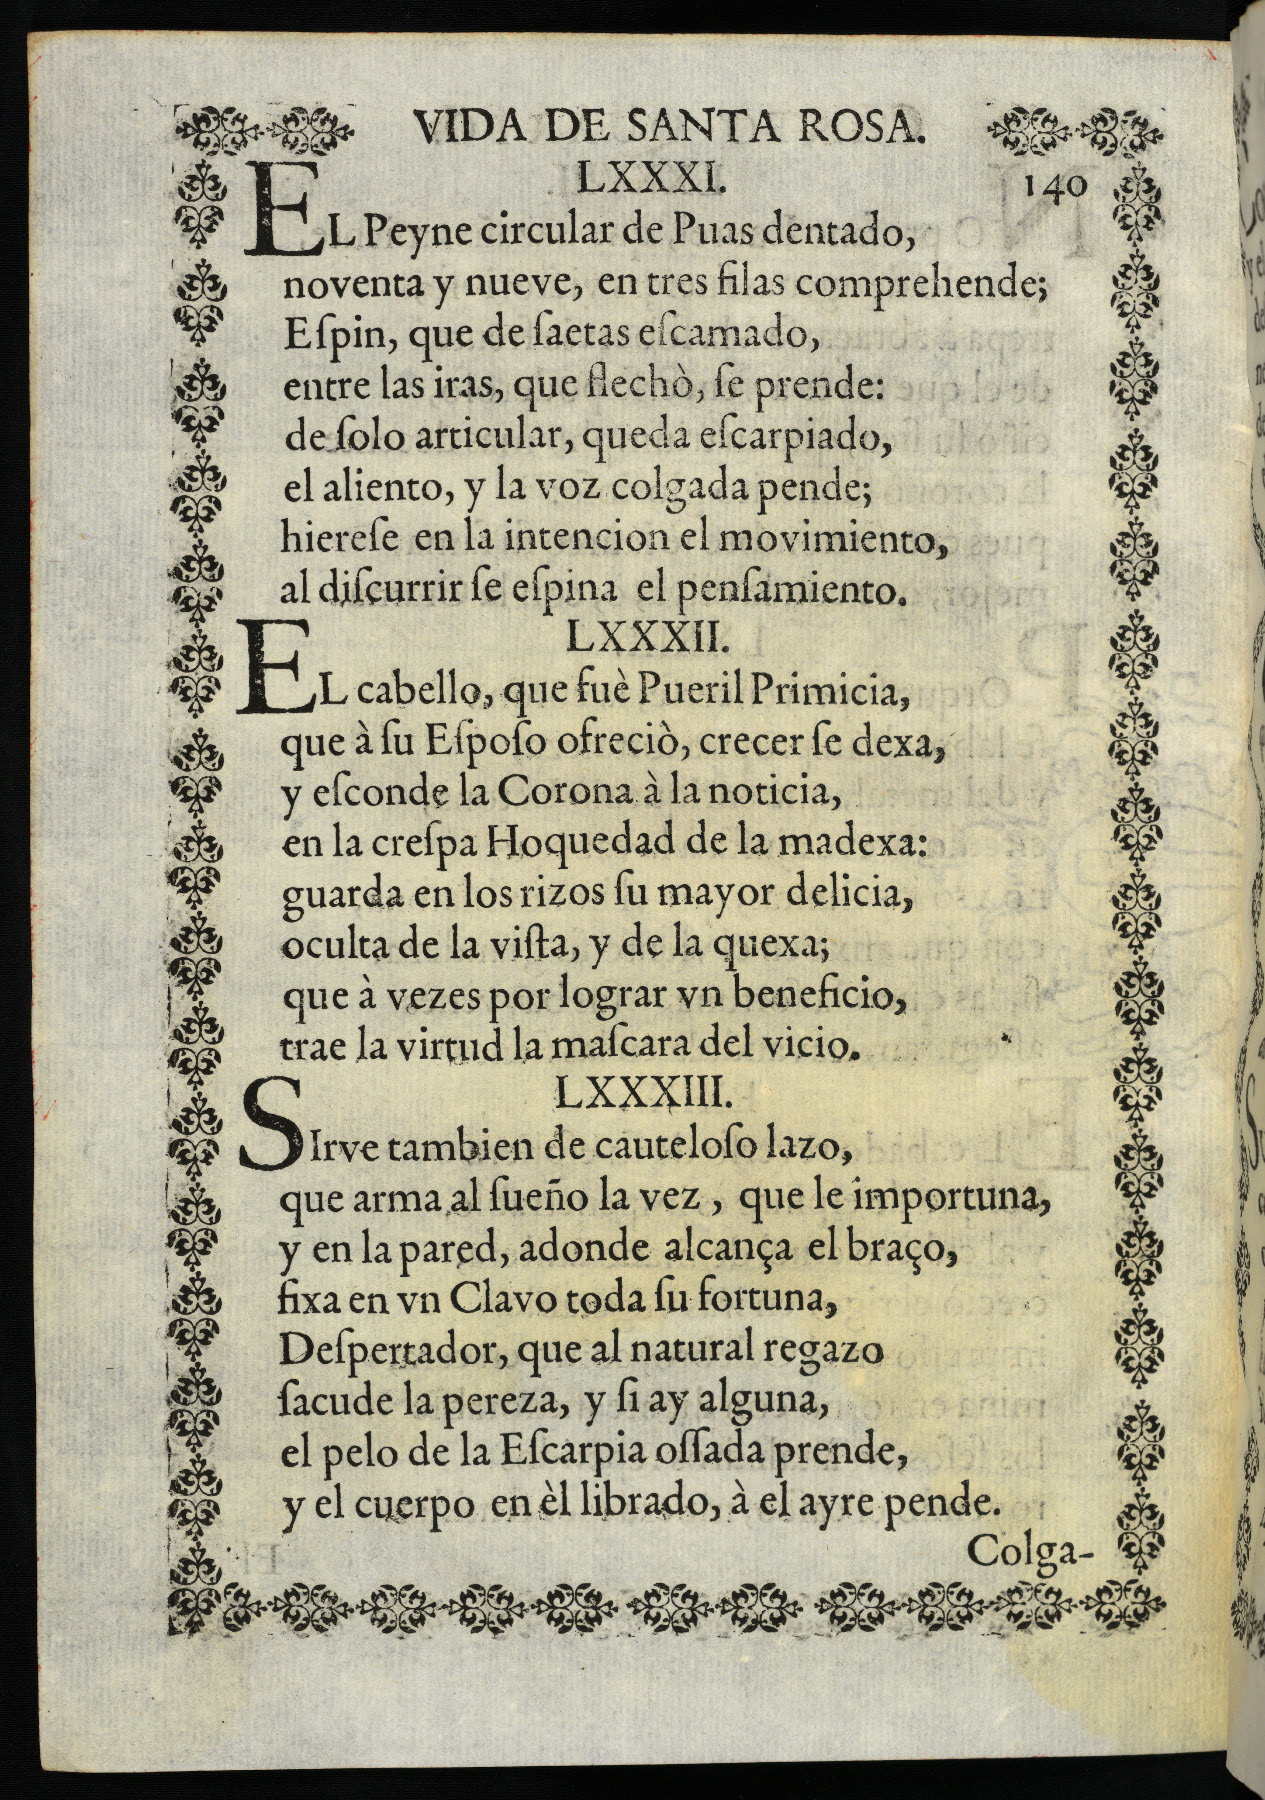 VIDA DE SANTA ROSA.
LXXXI.
140
EL Peyne circular de Puas dentado,
noventa y nueve, en tres filas comprehende;
Eſpin, que de ſaetas eſcamado,
entre las iras, que flechò, ſe prende:
de ſolo articular, queda eſcarpiado,
el aliento, y la voz colgada pende;
hiereſe en la intencion el movimiento,
al diſcurrir ſe eſpina el penſamiento.
LXXXII.
EL cabello, que fuè Pueril Primicia,
que à ſu Eſpoſo ofreciò, crecer ſe dexa,
y eſconde la Corona à la noticia,
en la creſpa Hoquedad de la madexa:
guarda en los rizos ſu mayor delicia,
oculta de la viſta, y de la quexa;
que à vezes por lograr vn beneficio,
trae la virtud la maſcara del vicio.
LXXXIII.
SIrve tambien de cauteloſo lazo,
que arma al ſueño la vez, que le importuna,
y en la pared, adonde alcança el braço,
fixa en vn Clavo toda ſu fortuna,
Deſpertador, que al natural regazo
ſacude la pereza, y ſi ay alguna,
el pelo de la Eſcarpia oſſada prende,
y el cuerpo en èl librado, à el ayre pende.
Colga-